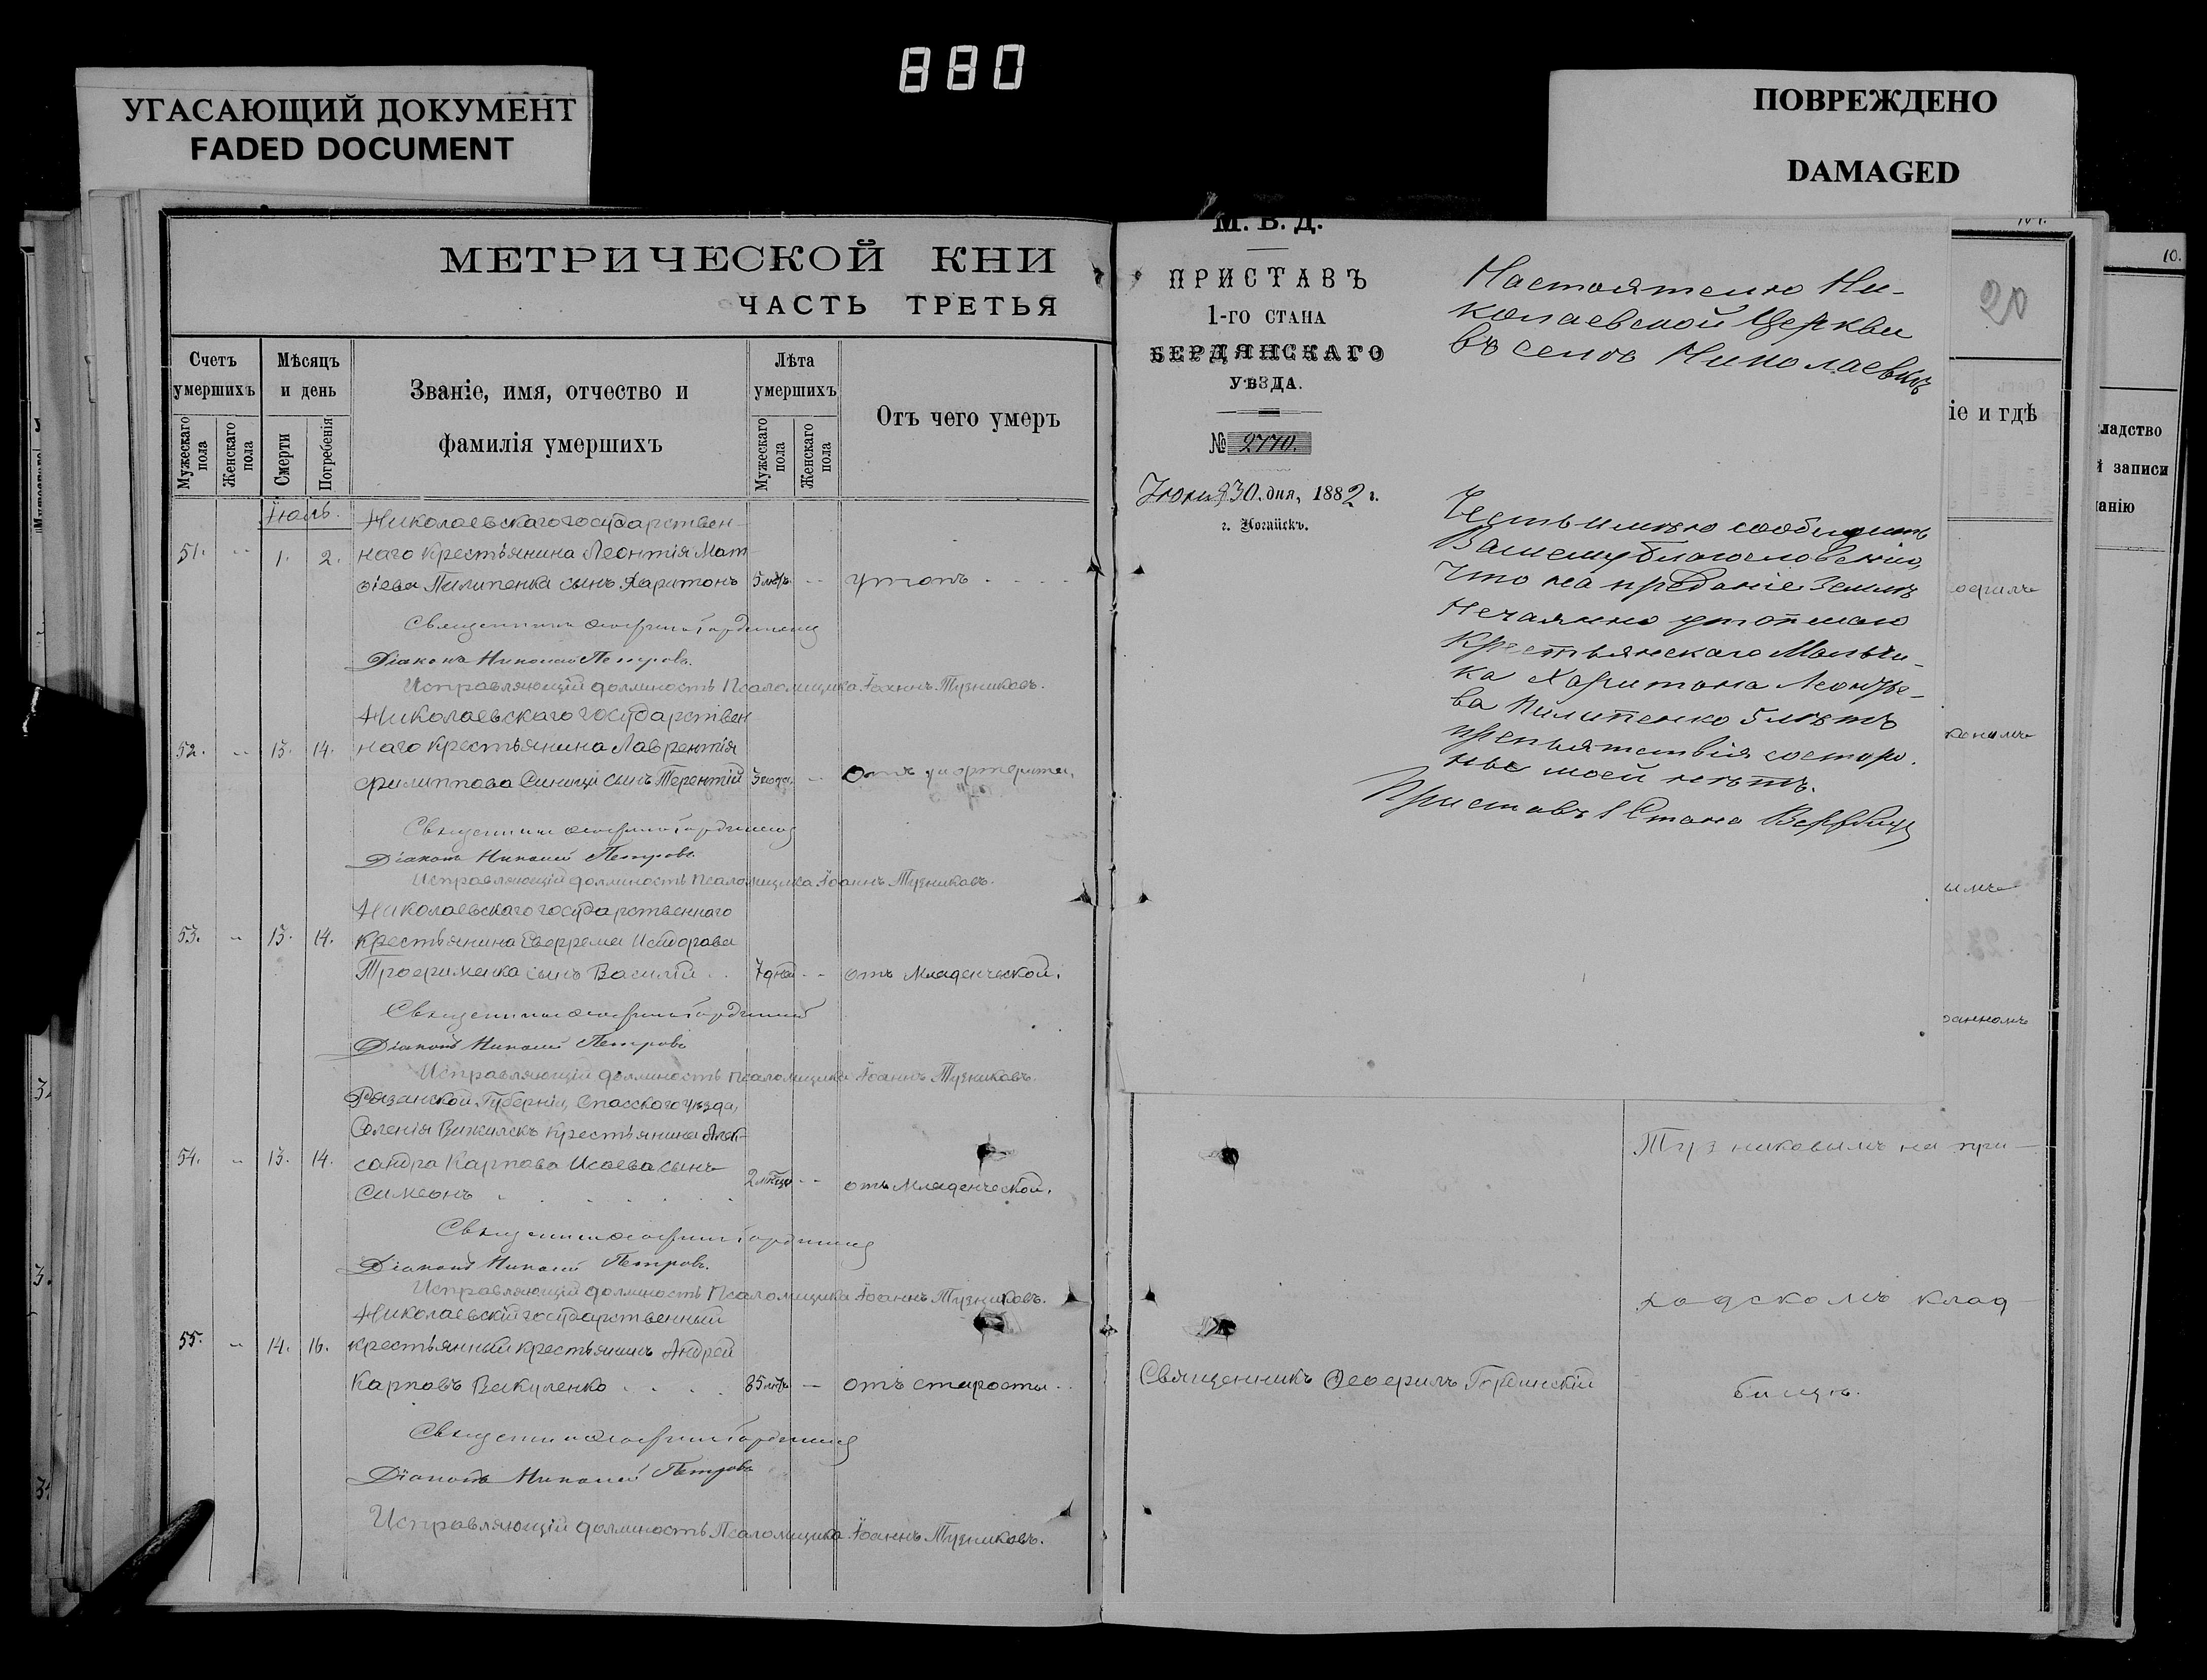 880
УГАСАЮЩИЙ ДОКУМЕНТ
FADED DOCUMENT
ПОВРЕЖДЕНО
DAMAGED
МЕТРИЧЕСКОЙ КНИ
ЧАСТЬ ТРЕТЬЯ
Счетъ умершихъ
Мужескаго пола
Женскаго пола
Мѣсяцъ и день
Смерти
Погребенія
Званіе, имя, отчество и
фамилія умершихъ
Лѣта умершихъ
Мужескаго пола
Женскаго пола
Отъ чего умеръ
Іюль.
Николаевскаго государствен-
51. 1. 2. наго крестьянина Леонтія Мат-
ѳіева Пилипенка сынъ Харитонъ 5 лѣтъ утопъ
Священникъ Ѳеофилъ Гординскій
Діаконъ Николай Петровъ.
Исправляющій должность Псаломщика Іоаннъ Тузниковъ.
Николаевскаго государствен
52. 13. 14. наго крестьянина Лаврентія
Филиппова сынъ Терентій 3 отъ
Священникъ Ѳеофилъ Гординскій
Діаконъ Николай Петровъ.
Исправляющій должность Псаломщика Іоаннъ Тузниковъ.
Николаевскаго государственнаго
53. 13. 14. крестьянина Ефрема Исидорова
Трофименка сынъ Василій 7 дней отъ Младенческой.
Священникъ Ѳеофилъ Гординскій
Діаконъ Николай Петровъ
Исправляющій должность Псаломщика Іоаннъ Тузниковъ.
Рязанской Губерніи, Спасскаго уѣзда,
Селенія крестьянина Алек-
54. 13. 14. сандра Карпова Исаева сынъ
Симеонъ 2 отъ Младенческой.
Священникъ Ѳеофилъ Гординскій
Діаконъ Николай Петровъ.
Исправляющій должность Псаломщика Іоаннъ Тузниковъ.
Николаевскій государственный
55. 14. 16. крестьянный крестьянинъ Андрей
Карповъ Викуленко 85 лѣтъ отъ старости
Священникъ Ѳеофилъ Гординскій
Діаконъ Николай Петровъ
Исправляющій должность Псаломщика Іоаннъ Тузниковъ.
М. В. Д.
ПРИСТАВЪ
1-го СТАНА
БЕРДЯНСКАГО
УѢЗДА.
№ 2770.
30. дня, 1882 г.
г. Ногайскъ.
Настоятелю Ни-
колаевской Церкви
въ селѣ Николаевкѣ
Честь имѣю сообщить
Вашему благословенію,
что на преданіе землѣ
нечаянно утопшаго
крестьянскаго мальчи-
ка Харитона Леонтье-
ва Пилипенко 5 лѣтъ
препятствія со сторо-
ны моей нѣтъ.
Приставъ 1 Стана
20
іе и гдѣ
офилъ
оанномъ
Тузниковымъ на при-
ходскомъ клад-
бищѣ.
Священникъ Ѳеофилъ Гординскій
10.
ладство
й записи
анію